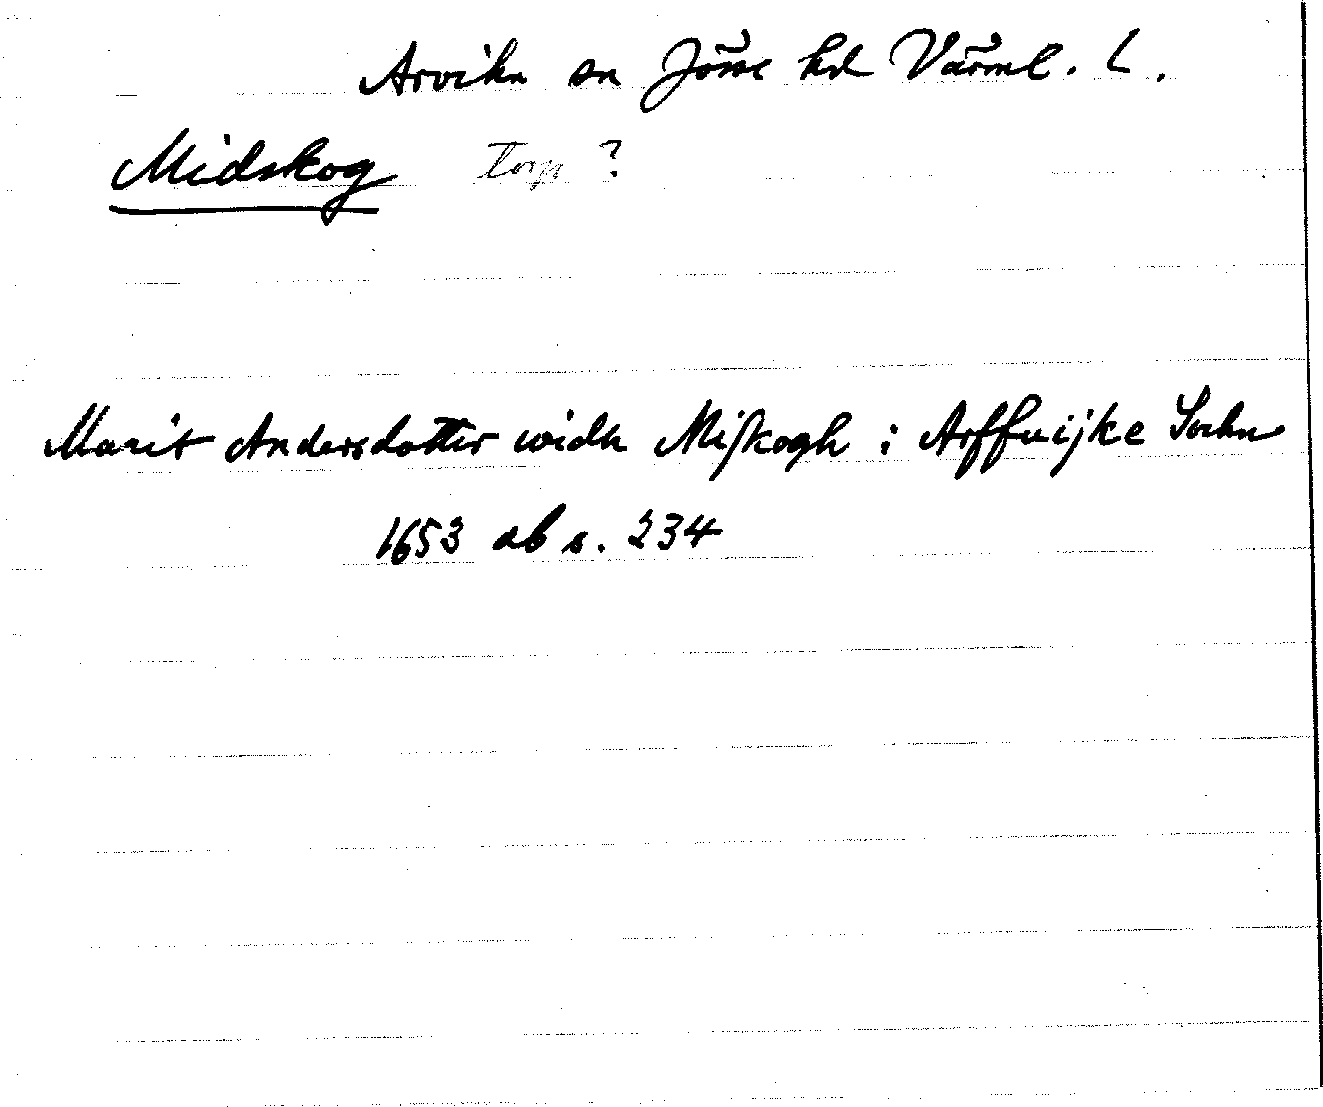 Arvika sn Jösse hd Värml. L.
Midskog torp?
Marit Andersdotter widh Miskogh i Arffuijke Sochn
1653 db s. 234